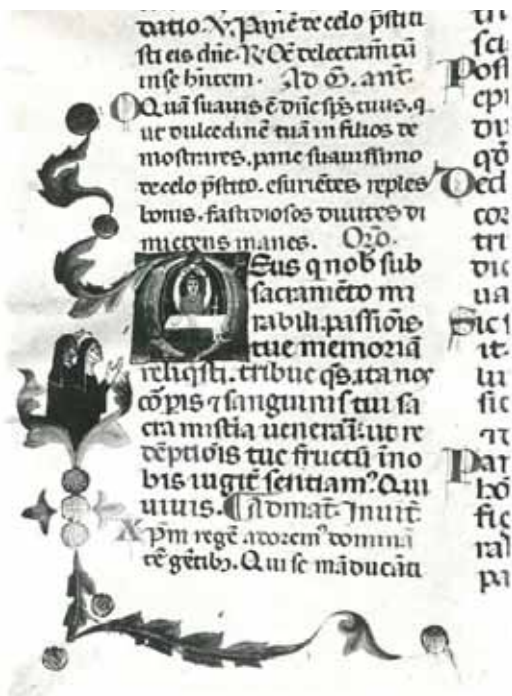 datio. V. Panē de celo p̄stiti
sti eis dn̄e. R. Oē delectam̄tū
in se h̄ntem. Ad M̄. ant̄.
O Quā suauis ē dn̄e sp̄s tuus. q̄
ut dulcedinē tuā in filios de
mostrares. pane suauissimo
de celo p̄stito. esuriētes reples
bonis. fastidiosos diuites di
mictens inanes. Or̄o.
Deus q nob̄ sub
sacramēto mi
rabili. passiōis
tue memoriā
reliqsti. tribue qs̄. ita nos
cōp̄is ⁊ sanguinis tui sa
cra mistia uenerari. ut re
dēptiōis tue fructū ī no
bis iugit̄ sentiam᾽. Qui
uiuis. Ad mat̄. Inuit̄.
Xp̄m regē adorem᾽ dominā
tē gētib᾽. Qui se māducāti
sci
Post
epi
qđ
Oecl
cor
tri
ua
sic
it
lu
sic
⁊t
Pan
hō
fic
pa